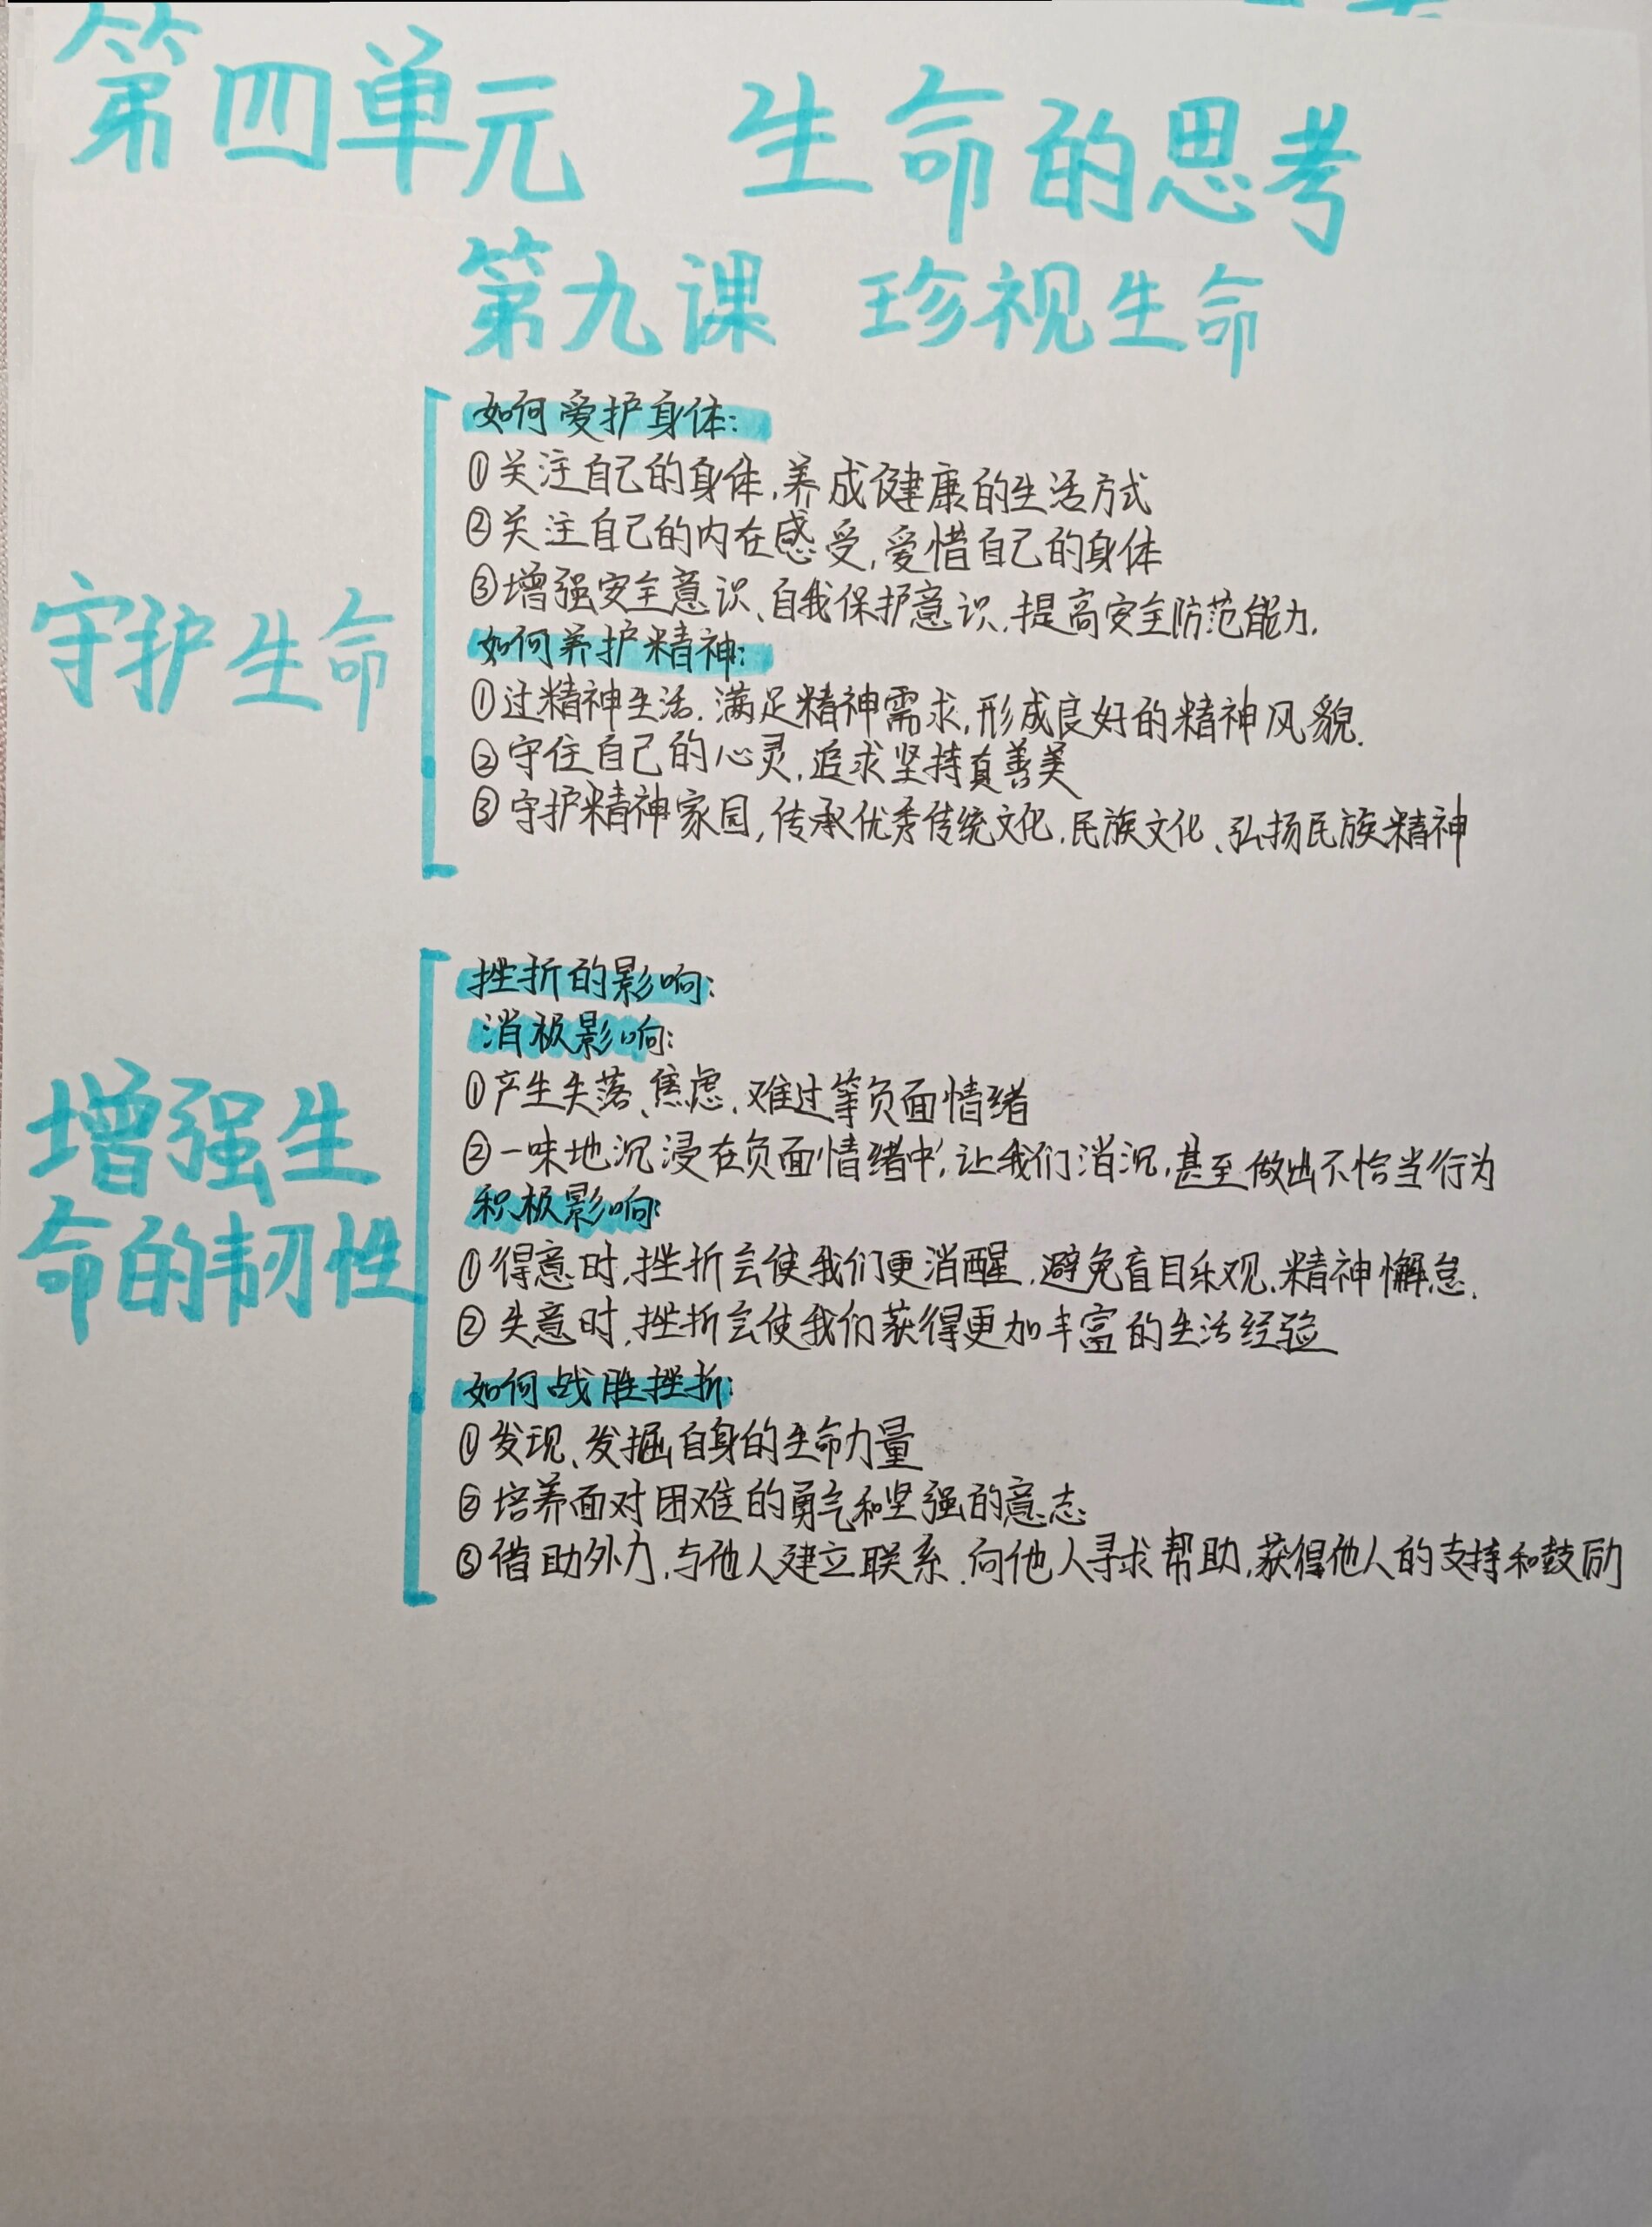 第四单元 生命的思考
第九课 珍视生命
守护生命
如何爱护身体:
①关注自己的身体,养成健康的生活方式
②关注自己的内在感受,爱惜自己的身体
③增强安全意识、自我保护意识,提高安全防范能力.
如何养护精神:
①过精神生活.满足精神需求,形成良好的精神风貌.
②守住自己的心灵,追求坚持真善美
③守护精神家园,传承优秀传统文化.民族文化、弘扬民族精神
增强生
命的韧性
挫折的影响:
消极影响:
①产生失落、焦虑、难过等负面情绪
②一味地沉浸在负面情绪中,让我们消沉,甚至做出不恰当行为
积极影响:
①得意时,挫折会使我们更消醒,避免盲目乐观.精神懈怠.
②失意时,挫折会使我们获得更加丰富的生活经验
如何战胜挫折:
①发现、发掘自身的生命力量
②培养面对困难的勇气和坚强的意志
③借助外力,与他人建立联系.向他人寻求帮助,获得他人的支持和鼓励